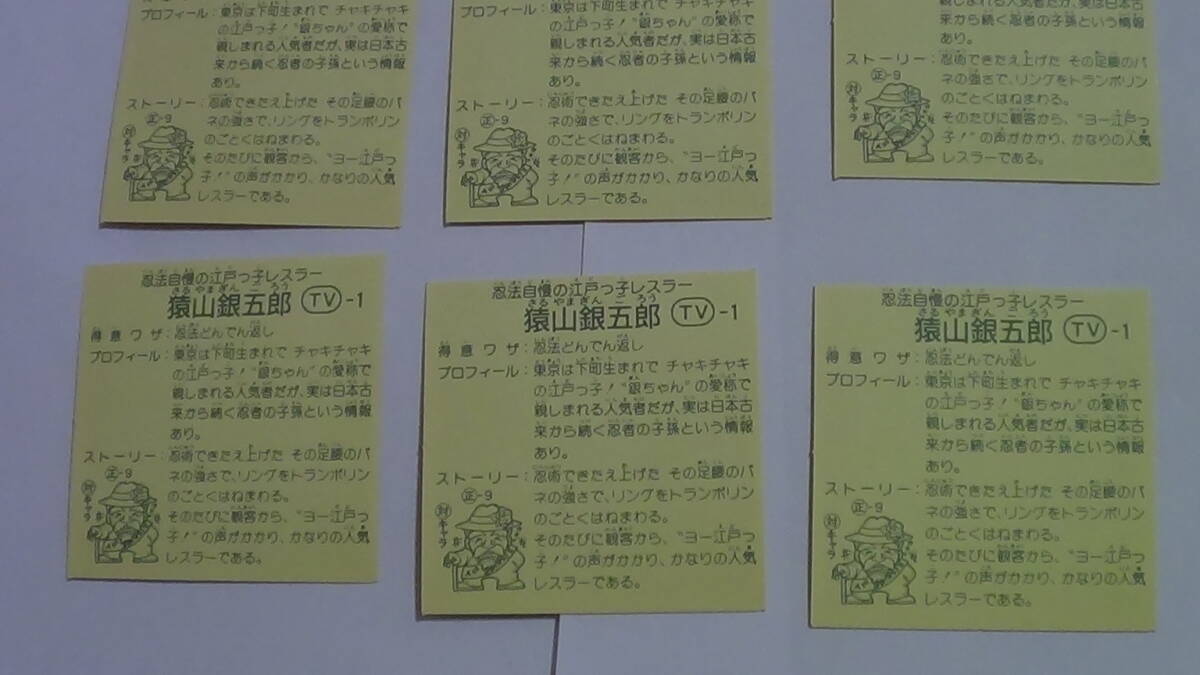 プロフィール：東京は下町生まれで チャキチャキ
の江戸っ子！“銀ちゃん”の愛称で
親しまれる人気者だが、実は日本古
来から続く忍者の子孫という情報
あり。
ストーリー：忍術できたえ上げた その足腰のバ
正-9 ネの強さで、リングをトランポリン
対キャラ のごとくはねまわる。
そのたびに観客から、“ヨー江戸っ
子！”の声がかかり、かなりの人気
レスラーである。
プロフィール：東京は下町生まれで チャキチャキ
の江戸っ子！“銀ちゃん”の愛称で
親しまれる人気者だが、実は日本古
来から続く忍者の子孫という情報
あり。
ストーリー：忍術できたえ上げた その足腰のバ
正-9 ネの強さで、リングをトランポリン
対キャラ のごとくはねまわる。
そのたびに観客から、“ヨー江戸っ
子！”の声がかかり、かなりの人気
レスラーである。
親しまれる人気者だが、実は日本古
来から続く忍者の子孫という情報
あり。
ストーリー：忍術できたえ上げた その足腰のバ
正-9 ネの強さで、リングをトランポリン
対キャラ のごとくはねまわる。
そのたびに観客から、“ヨー江戸っ
子！”の声がかかり、かなりの人気
レスラーである。
忍法自慢の江戸っ子レスラー
猿山銀五郎 TV-1
得意ワザ：忍法どんでん返し
プロフィール：東京は下町生まれで チャキチャキ
の江戸っ子！“銀ちゃん”の愛称で
親しまれる人気者だが、実は日本古
来から続く忍者の子孫という情報
あり。
ストーリー：忍術できたえ上げた その足腰のバ
正-9 ネの強さで、リングをトランポリン
対キャラ のごとくはねまわる。
そのたびに観客から、“ヨー江戸っ
子！”の声がかかり、かなりの人気
レスラーである。
忍法自慢の江戸っ子レスラー
猿山銀五郎 TV-1
得意ワザ：忍法どんでん返し
プロフィール：東京は下町生まれで チャキチャキ
の江戸っ子！“銀ちゃん”の愛称で
親しまれる人気者だが、実は日本古
来から続く忍者の子孫という情報
あり。
ストーリー：忍術できたえ上げた その足腰のバ
正-9 ネの強さで、リングをトランポリン
対キャラ のごとくはねまわる。
そのたびに観客から、“ヨー江戸っ
子！”の声がかかり、かなりの人気
レスラーである。
忍法自慢の江戸っ子レスラー
猿山銀五郎 TV-1
得意ワザ：忍法どんでん返し
プロフィール：東京は下町生まれで チャキチャキ
の江戸っ子！“銀ちゃん”の愛称で
親しまれる人気者だが、実は日本古
来から続く忍者の子孫という情報
あり。
ストーリー：忍術できたえ上げた その足腰のバ
正-9 ネの強さで、リングをトランポリン
対キャラ のごとくはねまわる。
そのたびに観客から、“ヨー江戸っ
子！”の声がかかり、かなりの人気
レスラーである。